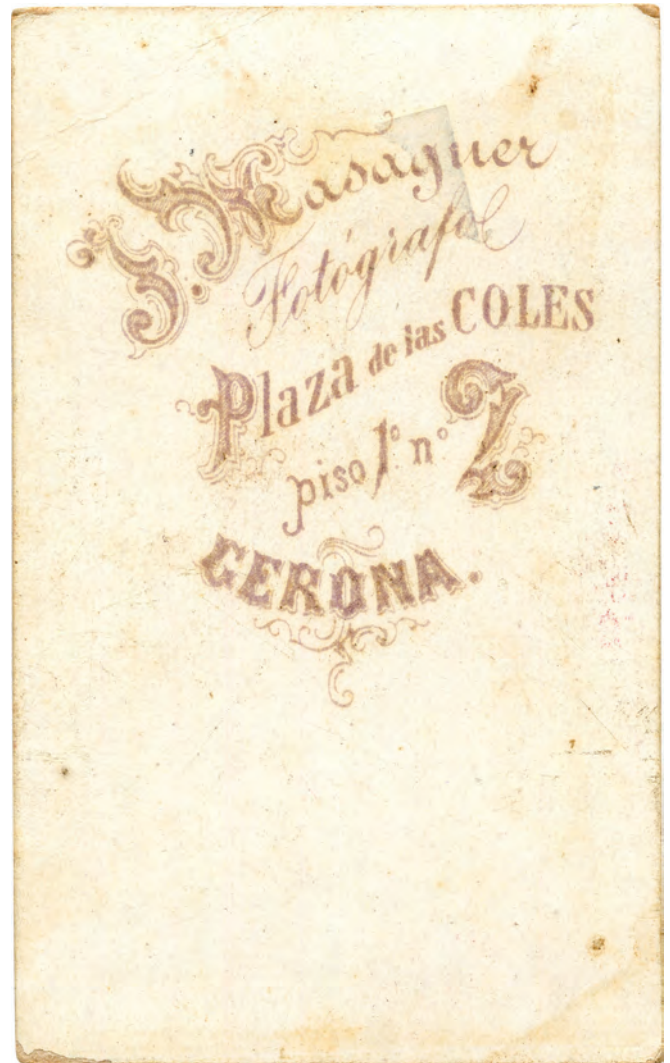 J. Masaguer
Fotógrafo
Plaza de las COLES
piso 1º. nº 2
GERONA.